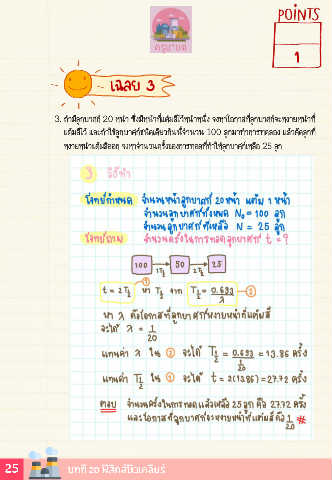 POiNTS
1
ครูบายด์
เฉลย 3
3. ถ้ามีลูกบาศก์ 20 หน้า ซึ่งมีหน้าที่แต้มสีไว้หน้าหนึ่ง จงหาโอกาสที่ลูกบาศก์จะหงายหน้าที่
แต้มสีไว้ และถ้าใช้ลูกบาศก์ชนิดเดียวกันนี้จำนวน 100 ลูกมาทำการทอดลง แล้วคัดลูกที่
หงายหน้าแต้มสีออก จงหาจำนวนครั้งของการทอดที่ทำให้ลูกบาศก์เหลือ 25 ลูก
3 วิธีทำ
โจทย์กำหนด จำนวนหน้าลูกบาศก์ 20 หน้า แต้ม 1 หน้า
จำนวนลูกบาศก์ทั้งหมด N₀ = 100 ลูก
จำนวนลูกบาศก์ที่เหลือ N = 25 ลูก
โจทย์ถาม จำนวนครั้งในการทอดลูกบาศก์ t = ?
100 → 50 → 25
1T½ 2T½
t = 2T½ ① หา T½ จาก T½ = 0.693/λ ②
หา λ คือโอกาสที่ลูกบาศก์หงายหน้าที่แต้มสี
จะได้ λ = 1/20
แทนค่า λ ใน ② จะได้ T½ = 0.693/(1/20) = 13.86 ครั้ง
แทนค่า T½ ใน ① จะได้ t = 2(13.86) = 27.72 ครั้ง
ตอบ จำนวนครั้งในการทอดแล้วเหลือ 25 ลูก คือ 27.72 ครั้ง
และโอกาสที่ลูกบาศก์จะหงายหน้าที่แต้มสีคือ 1/20 #
25 บทที่ 20 ฟิสิกส์นิวเคลียร์